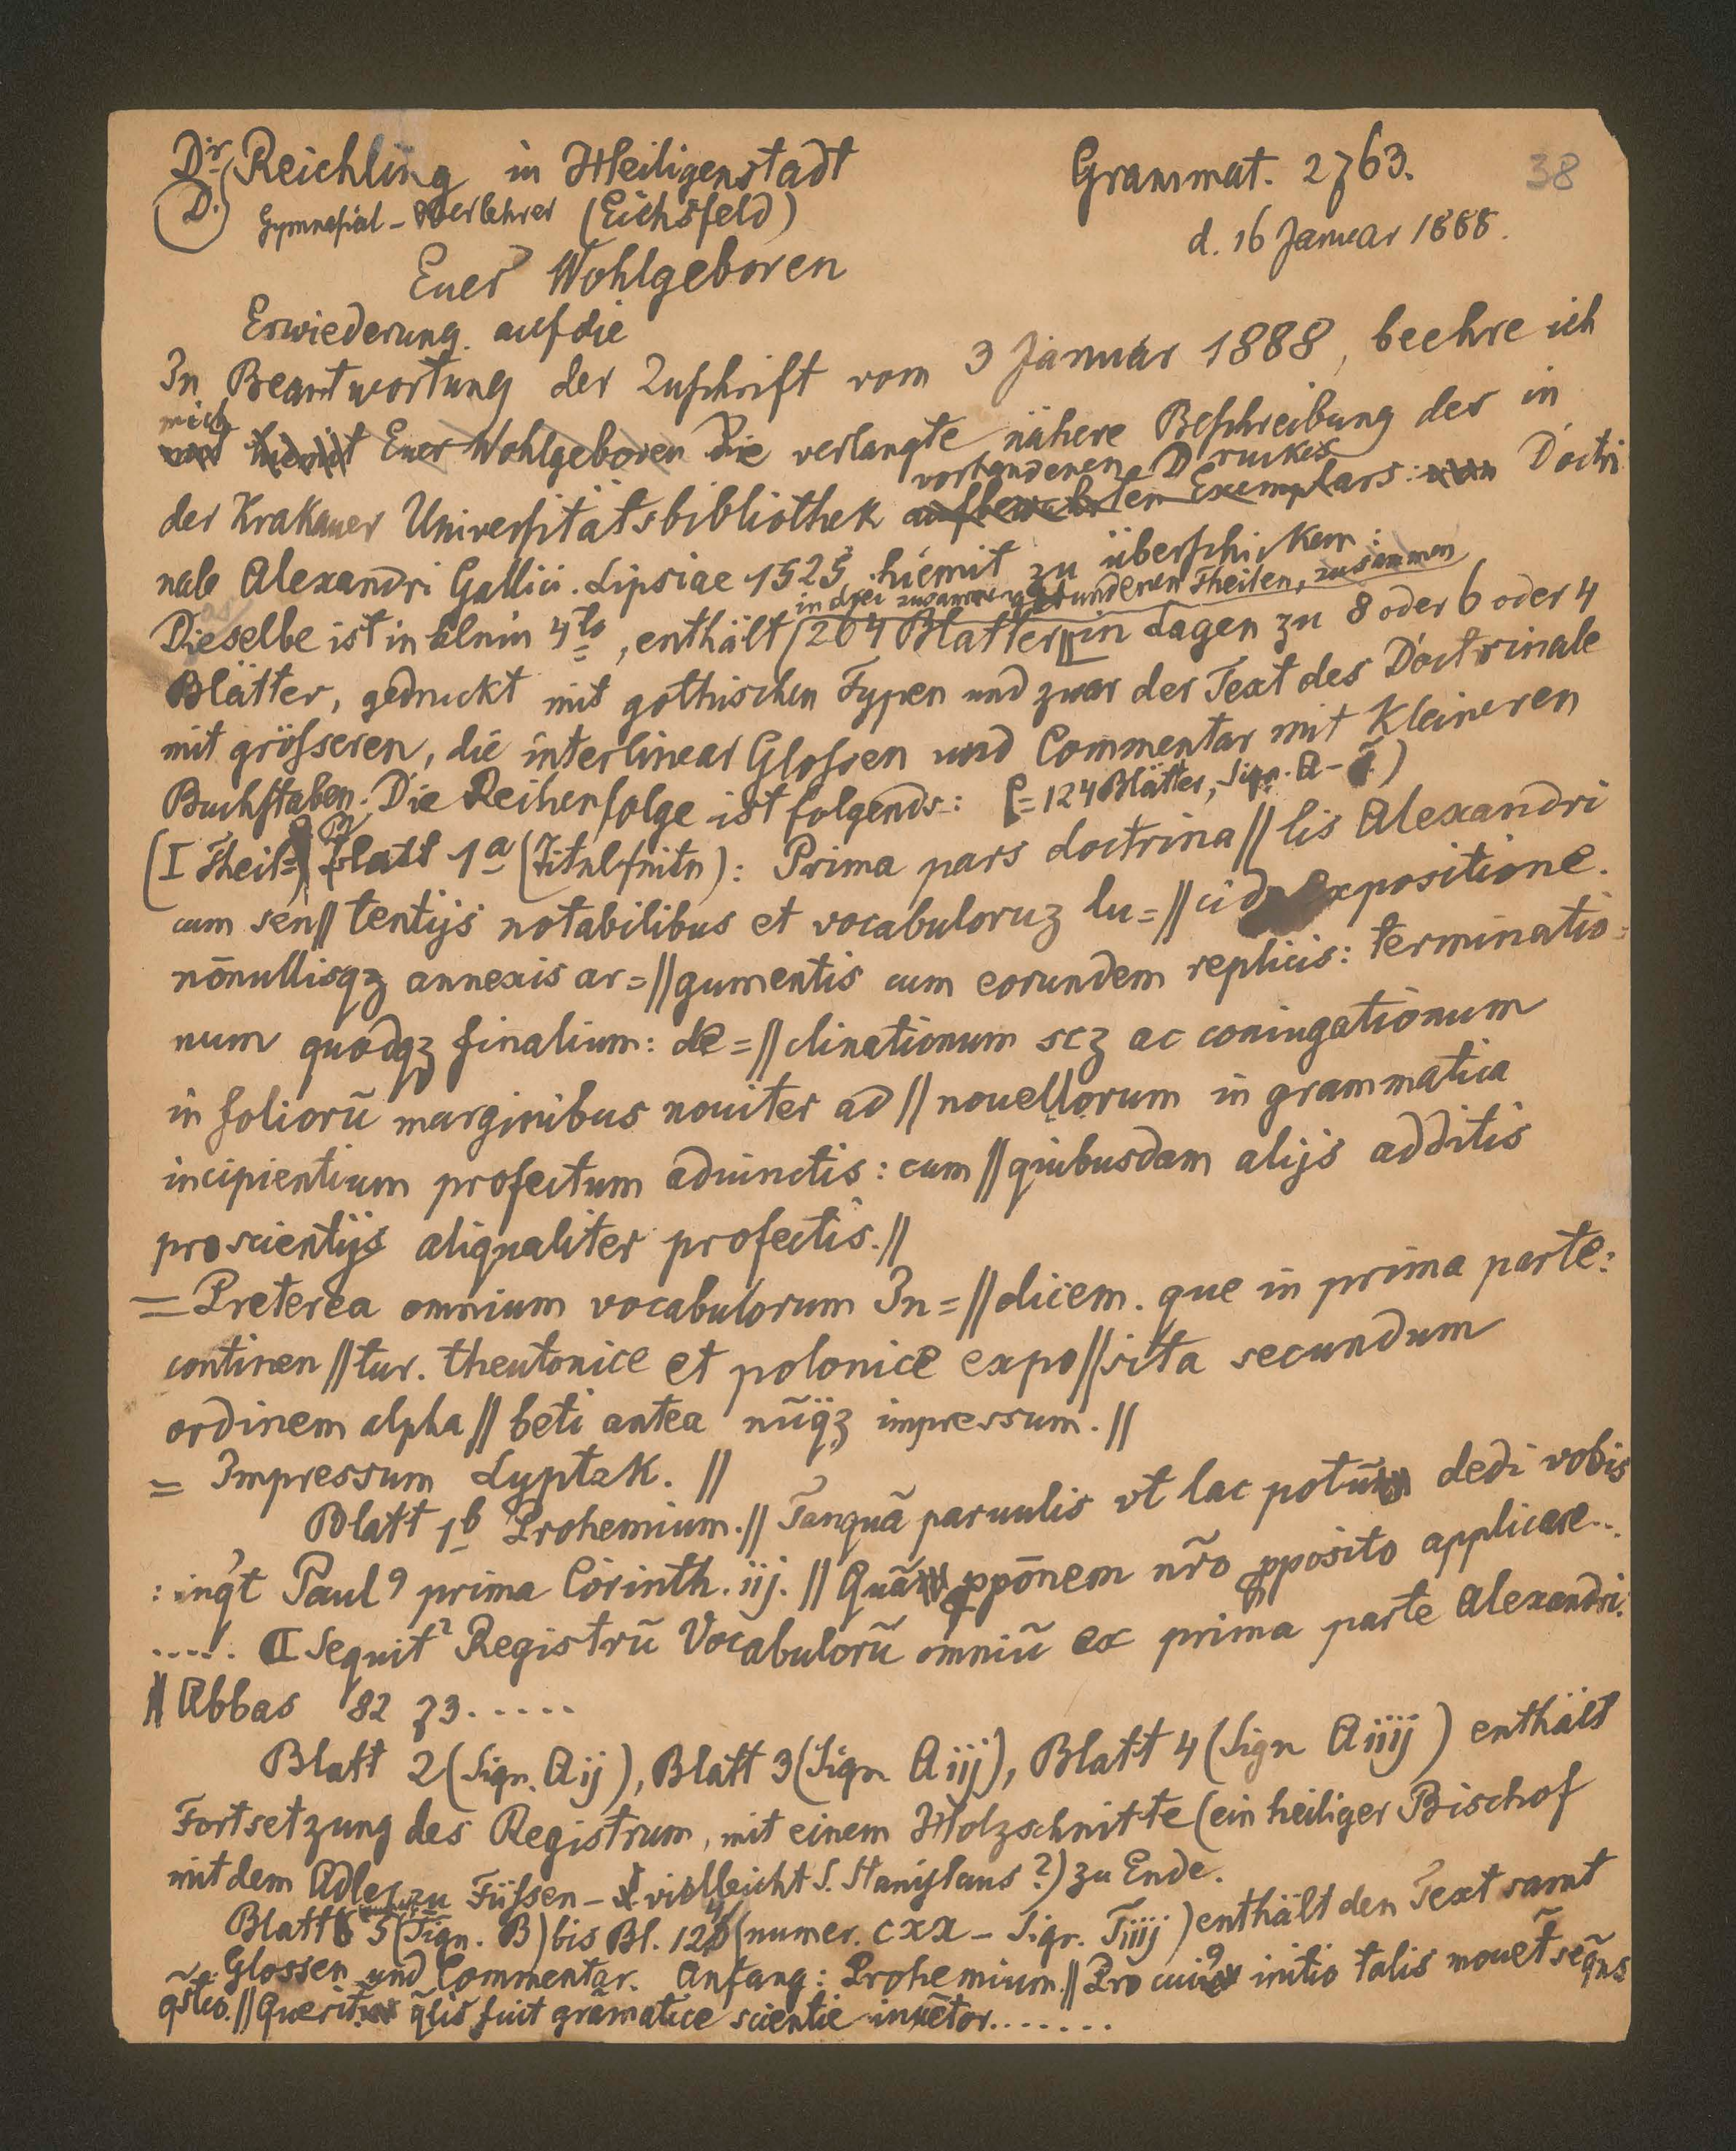 Dr. Reichling in Heiligenstadt
Grammat. 2763.
38
D. Gymnasial-Oberlehrer (Eichsfeld)
d. 16 Januar 1888.
Euer Wohlgeboren
Erwiederung auf die
In Beantwortung der Zuschrift vom 3 Januar 1888, beehre ich
mich
hiemit Euer Wohlgeboren Die verlangte nähere Beschreibung des in
vorhandenen Druckes
der Krakauer Universitätsbibliothek aufbewahrten Exemplars: Doctri
nale Alexandri Gallici. Lipsiae 1525, hiemit zu überschicken:
in drei zusammengebundenen Theilen, zusammen
Dieselbe ist in klein 4to, enthält 264 Blätter in Lagen zu 8 oder 6 oder 4
Blätter, gedruckt mit gothischen Typen und zwar der Text des Doctrinale
mit grösseren, die interlinear Glossen und Commentar mit kleineren
Buchstaben. Die Reihenfolge ist folgende: (= 124 Blätter, Sign. A – )
(I Theil=) Blatt 1a (Titelseite): Prima pars doctrina // lis Alexandri
cum sen // tentijs notabilibus et vocabuloruz lu= // cida expositione.
nōnullisqz annexis ar= // gumentis cum eorundem replicis: terminatio=
num quodqz finalium: de= // clinationum scz ac coniugationum
in foliorū marginibus nouiter ad // nouellorum in grammatica
incipientium profectum adiunctis: cum // quibusdam alijs additis
pro scientijs aliqualiter profectis. //
= Preterea omnium vocabulorum In= // dicem. que in prima parte:
continen // tur. theutonice et polonice expo // sita secundum
ordinem alpha // beti antea nūqz impressum. //
= Impressum Lyptzk. //
Blatt 1b Prohemium. // Tanquā paruulis vt lac potū dedi vobis
: inq't Paul9 prima Corinth. iij. // Quā ppōnem nr̄o pposito applicare...
..... ⁋ Sequit2 Registrū Vocabulorū omniū ex prima parte Alexandri.
// Abbas 82 73.....
Blatt 2 (Sign. Aij), Blatt 3 (Sign Aiij), Blatt 4 (Sign Aiiij) enthält
Fortsetzung des Registrum, mit einem Holzschnitte (ein heiliger Bischof
mit dem Adler zu Füssen – vielleicht S. Stanislaus?) zu Ende.
Blatt 5 (Sign. B) bis Bl. 124 (numer. cxx – Sign. Tiiij) enthält den Text samt
Glossen und Commentar. Anfang: Prohemium. // Pro cui9 initio talis mouet̄ seq̄ns
q̄stio. // Querit q̄lis fuit grāmatice scientie inuētor.......